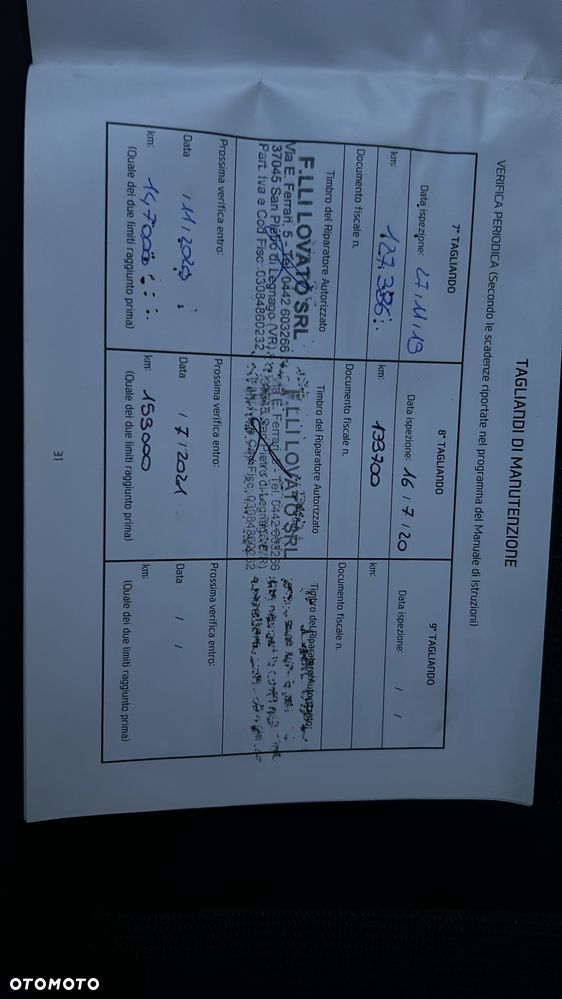 TAGLIANDI DI MANUTENZIONE
VERIFICA PERIODICA (Secondo le scadenze riportate nel programma del Manuale di Istruzioni)
7° TAGLIANDO
Data ispezione: 27/11/19
km: 127.386
Documento fiscale n.
Timbro del Riparatore Autorizzato
F.LLI LOVATO SRL
Via E. Ferrari, 5 - Tel. 0442 603266
37045 San Pietro di Legnago (VR)
Part. Iva e Cod Fisc. 03084860232
Prossima verifica entro:
Data / 11 / 2020
km: 147000
(Quale dei due limiti raggiunto prima)
8° TAGLIANDO
Data ispezione: 16 / 7 / 20
km: 133300
Documento fiscale n.
Timbro del Riparatore Autorizzato
F.LLI LOVATO SRL
Via E. Ferrari, 5 - Tel. 0442 603266
37045 San Pietro di Legnago (VR)
Part. Iva e Cod Fisc. 03084860232
Prossima verifica entro:
Data / 7 / 2021
km: 153000
(Quale dei due limiti raggiunto prima)
9° TAGLIANDO
Data ispezione: / /
km:
Documento fiscale n.
Timbro del Riparatore Autorizzato
Prossima verifica entro:
Data / /
km:
(Quale dei due limiti raggiunto prima)
31
OTOMOTO